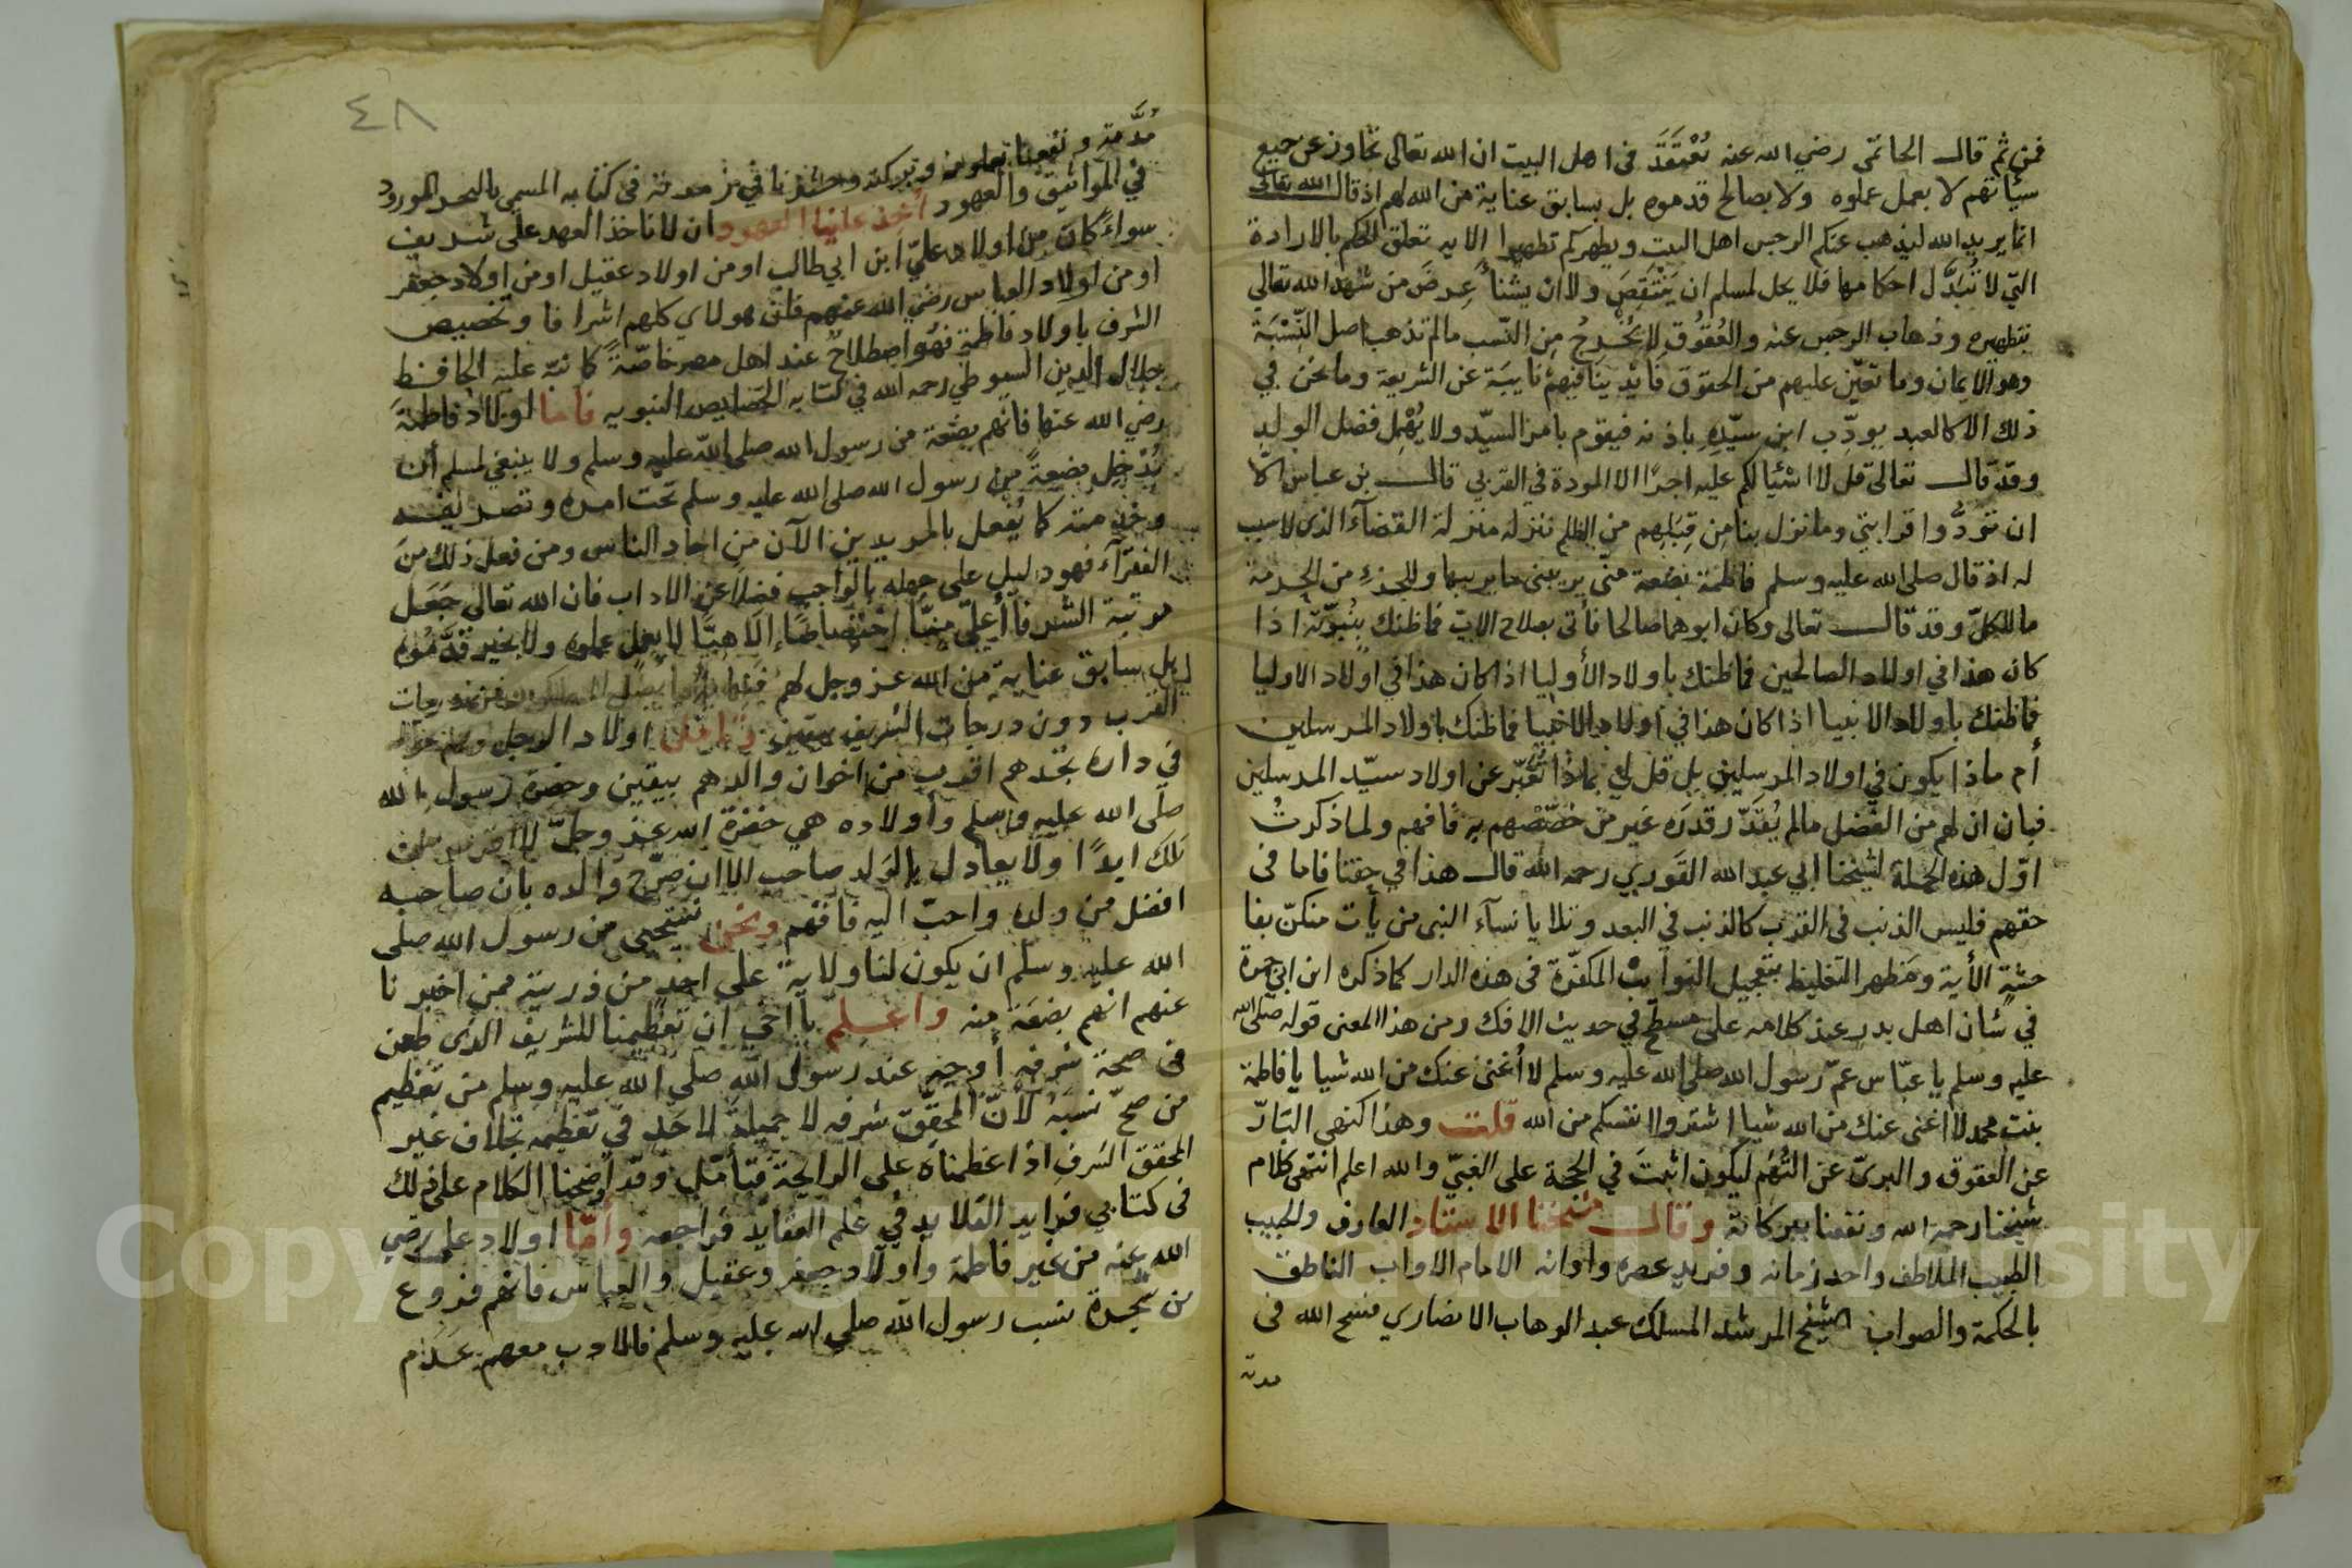 فمن ثم قال الحاتمى رضي الله عنه نُعْتَقَدَ فى اهل البيت ان الله تعالى تجاوز عن جميع
سيّأتهم لا بعمل عملوه ولا بصالح قدموه بل بسابق عناية من الله لهم اذ قال الله تعالى
انما يريد الله ليذهب عنكم الرجس اهل البيت ويطهركم تطهيرا الايه تعلق الحكم بالارادة
التي لا تُبَدَّل احكامها فلا يحل لمسلم ان يَنْتَقِصَ ولا ان يشنأ عِرضَ من شهد الله تعالى
بتطهيره وذهاب الرجس عنه والعُقُوق لا يُخْرِجُ مِن النّسب مالم تذهب اصل النِّسْبَة
وهو الايمان وما تعيّن عليهم من الحقوق فايدينا فيهم نايبَة عن الشريعة وما نحن في
ذلك الا كالعبد يودِّب ابن سيّدِهِ باذنه فيقوم بامر السيّد ولا يُهْمِل فضل الولدِ
وقد قال تعالى قل لا اسْئلكم عليه اجرًا الا المودة في القربي قال بن عباس الّا
ان تَوَدُّوا قرابتي وما نزل بنا مِن قِبَلِهِم من الظلم ننزله منزلة القضآء الذى لا سبب
له اذ قال صلى الله عليه وسلم فاطمة بَضْعة منّى يريبنى ما يريبها وللجزءِ من الحرمة
ما للكلّ وقد قال تعالى وكان ابوهما صالحا فأتى بصلاح الابِ فما ظنك بنُبوّته اذا
كان هذا في اولاد الصالحين فما ظنك باولاد الأوليا اذا كان هذا في اولاد الاوليا
فما ظنك باولاد الانبيا اذا كان هذا في اولاد الانبيا فما ظنك باولاد المرسلين
أم ماذا يكون في اولاد المرسلين بل قل لي بماذا تُعَبّر عن اولاد سيّد المرسلين
فبان ان لهم من الفضل مالم يُقَدّر قدرَه غير من خصّصهم به فافهم ولما ذكرتُ
اوّل هذه الجملة لشيخنا ابي عبد الله القَوري رحمه الله قال هذا في حقنا فاما فى
حقهم فليس الذنب فى القرب كالذنب في البعد وتلا يا نسآء النبى من يأت منكنّ بفا
حشةٍ الأية ومَظهر التغليظ بتعجيل النوايبِ المكفرّة فى هذه الدار كما ذكره ابن ابي جمرة
في شان اهل بدر عند كلامه على مسطح في حديث الافك ومن هذا المعنى قوله صلى الله
عليه وسلم يا عبّاس عمّ رسول الله صلى الله عليه وسلم لا أُغنى عنك من الله شيا يا فاطمة
بنت محمد لا اغنى عنك من الله شيا اشتروا انفسكم من الله قلت وهذا كنهى البَارّ
عن العقوق والبرىّ عن التُهَم ليكون اثبتَ في الحجة على الغبيّ والله اعلم انتهى كلام
شيخنا رحمه الله ونفعنا ببركاته وقال شيخنا الاستاد العارف والحبيب
الطبيب الملاطف واحد زمانه وفريد عصره واوانه الامام الاواب الناطق
بالحكمة والصواب الشيخ المرشد المسلك عبد الوهاب الانصاري فسح الله فى
مدته
٤٨
مُدّته ونفعنا بعلومه وبركته وحشرنا في زمرته فى كتابه المسمى بالبحر المورود
في المواثيق والعهود أخذ علينا العهود ان لا ناخذ العهد على شريف
سواءً كان من اولاد عليّ ابن ابي طالب او من اولاد عقيل او من اولاد جعفر
او من اولاد العباس رضي الله عنهم فان هولاي كلهم اشرافا وتخصيص
الشرف باولاد فاطمة فهُو اصطلاحٌ عند اهل مصر خاصّةً كما نبّه عليه الحافظ
جلال الدين السيوطي رحمه الله في كتابه الخصايص النبويه فاما اولاد فاطمةَ
رضي الله عنها فانهم بضعة من رسول الله صلى الله عليه وسلم ولا ينبغي لمسلم أن
يُدْخِل بضعةً من رسول الله صلى الله عليه وسلم تحت امره وتصريفه
وخدمته كما يُفعل بالمريدين الآن من احاد الناس ومن فعل ذلك منَ
الفقرآء فهو دليل على جهله بالواجب فضلًا عن الاداب فان الله تعالى جَعَل
مرتبة الشرفا أعليّ منّا اخْتصاصًا إلاهيًّا لا بعمل عملوه ولا بخير قدَّمُوه
بل سابق عناية من الله عز وجل لهم
القرب دون درجات الشريف بيقين اولاد الرجل
في داره تجدهم اقرب من اخوان والدهم بيقين وحضرة رسول الله
صلى الله عليه وسلم وأولاده هي حضرة الله عز وجلّ لا
تلك ابدًا ولا يعادل بالولد صاحب الا ان صرّح والده بان صاحبه
افضل من ولده واحبّ اليه فافهم ونحن نستحيى من رسول الله صلى
الله عليه وسلم ان يكون لنا ولاية على احدٍ من ذريته ممن اخبرنا
عنهم انهم بضعَة منه واعلم يا اخي ان تعظيمنا للشريف الذى طعن
فى صحة شرفه أوجه عند رسول الله صلى الله عليه وسلم من تعظيم
من صحّ نسَبَهُ لأنّ المحقّق شرفه لا جميلةَ لاحَدٍ في تعظيمه بخلاف غير
المحقق الشرف اذا عظمناه على الرايحة فتأمّل وقد اوضحنا الكلام على ذلك
فى كتابي فرايد القلايد في علم العقايد فراجعه وأمّا اولاد على رضي
الله عنه من غير فاطمة واولاد جعفر وعقيل والعباس فانهم فروع
من شجرة نسب رسول الله صلى الله عليه وسلم فالادب معهم عَدَم
Copyright © King Saud University